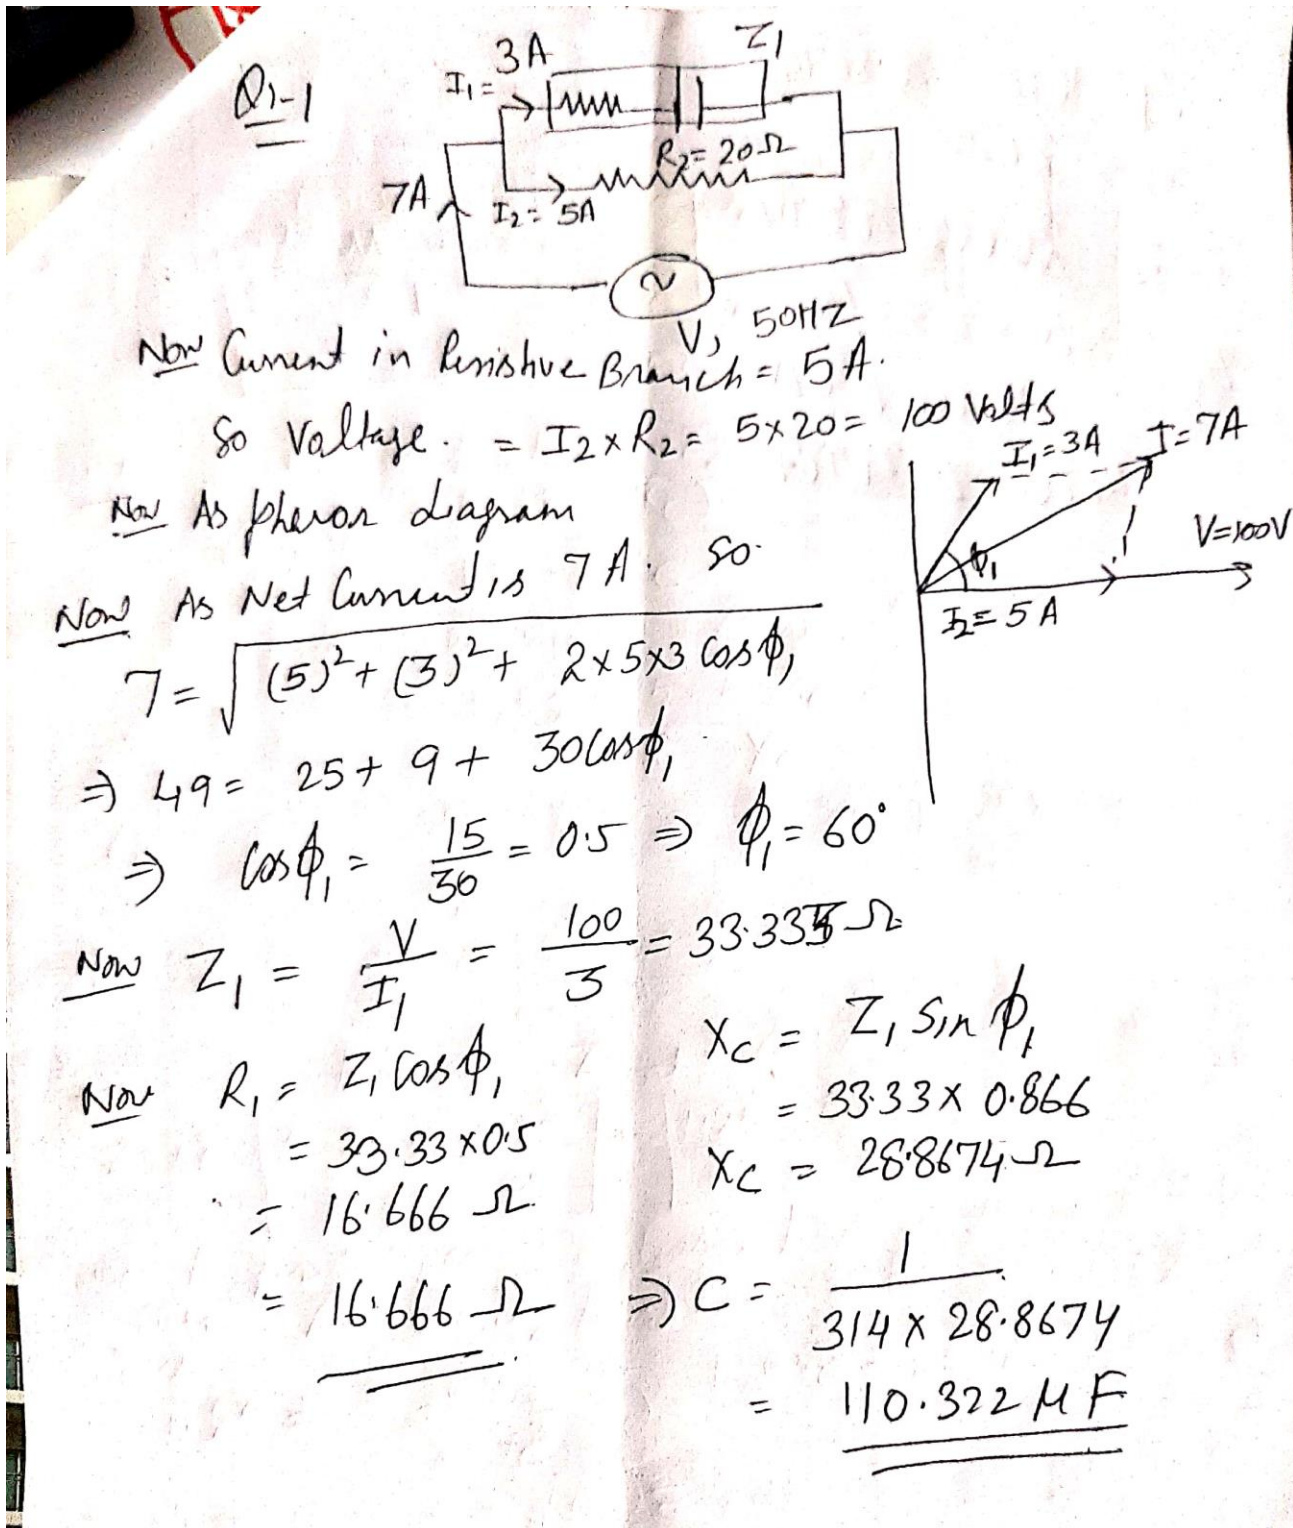 Q1-1
3A
I1 =
Z1
R2 = 20Ω
7A
I2 = 5A
V, 50HZ
Now Current in Resistive Branch = 5A.
So Voltage. = I2 x R2 = 5x20 = 100 Volts
Now As phasor diagram
I1 = 3A
I = 7A
V=100V
ϕ1
I2 = 5A
Now As Net Current is 7A. So
7 = √((5)² + (3)² + 2x5x3 Cosϕ1)
⇒ 49 = 25 + 9 + 30Cosϕ1
⇒ Cosϕ1 = 15/30 = 0.5 ⇒ ϕ1 = 60°
Now Z1 = V/I1 = 100/3 = 33.333Ω
Now R1 = Z1 Cosϕ1
= 33.33 x 0.5
= 16.666 Ω.
= 16.666 Ω
Xc = Z1 Sin ϕ1
= 33.33 x 0.866
Xc = 28.8674 Ω
⇒ C = 1/(314 x 28.8674)
= 110.322 μF